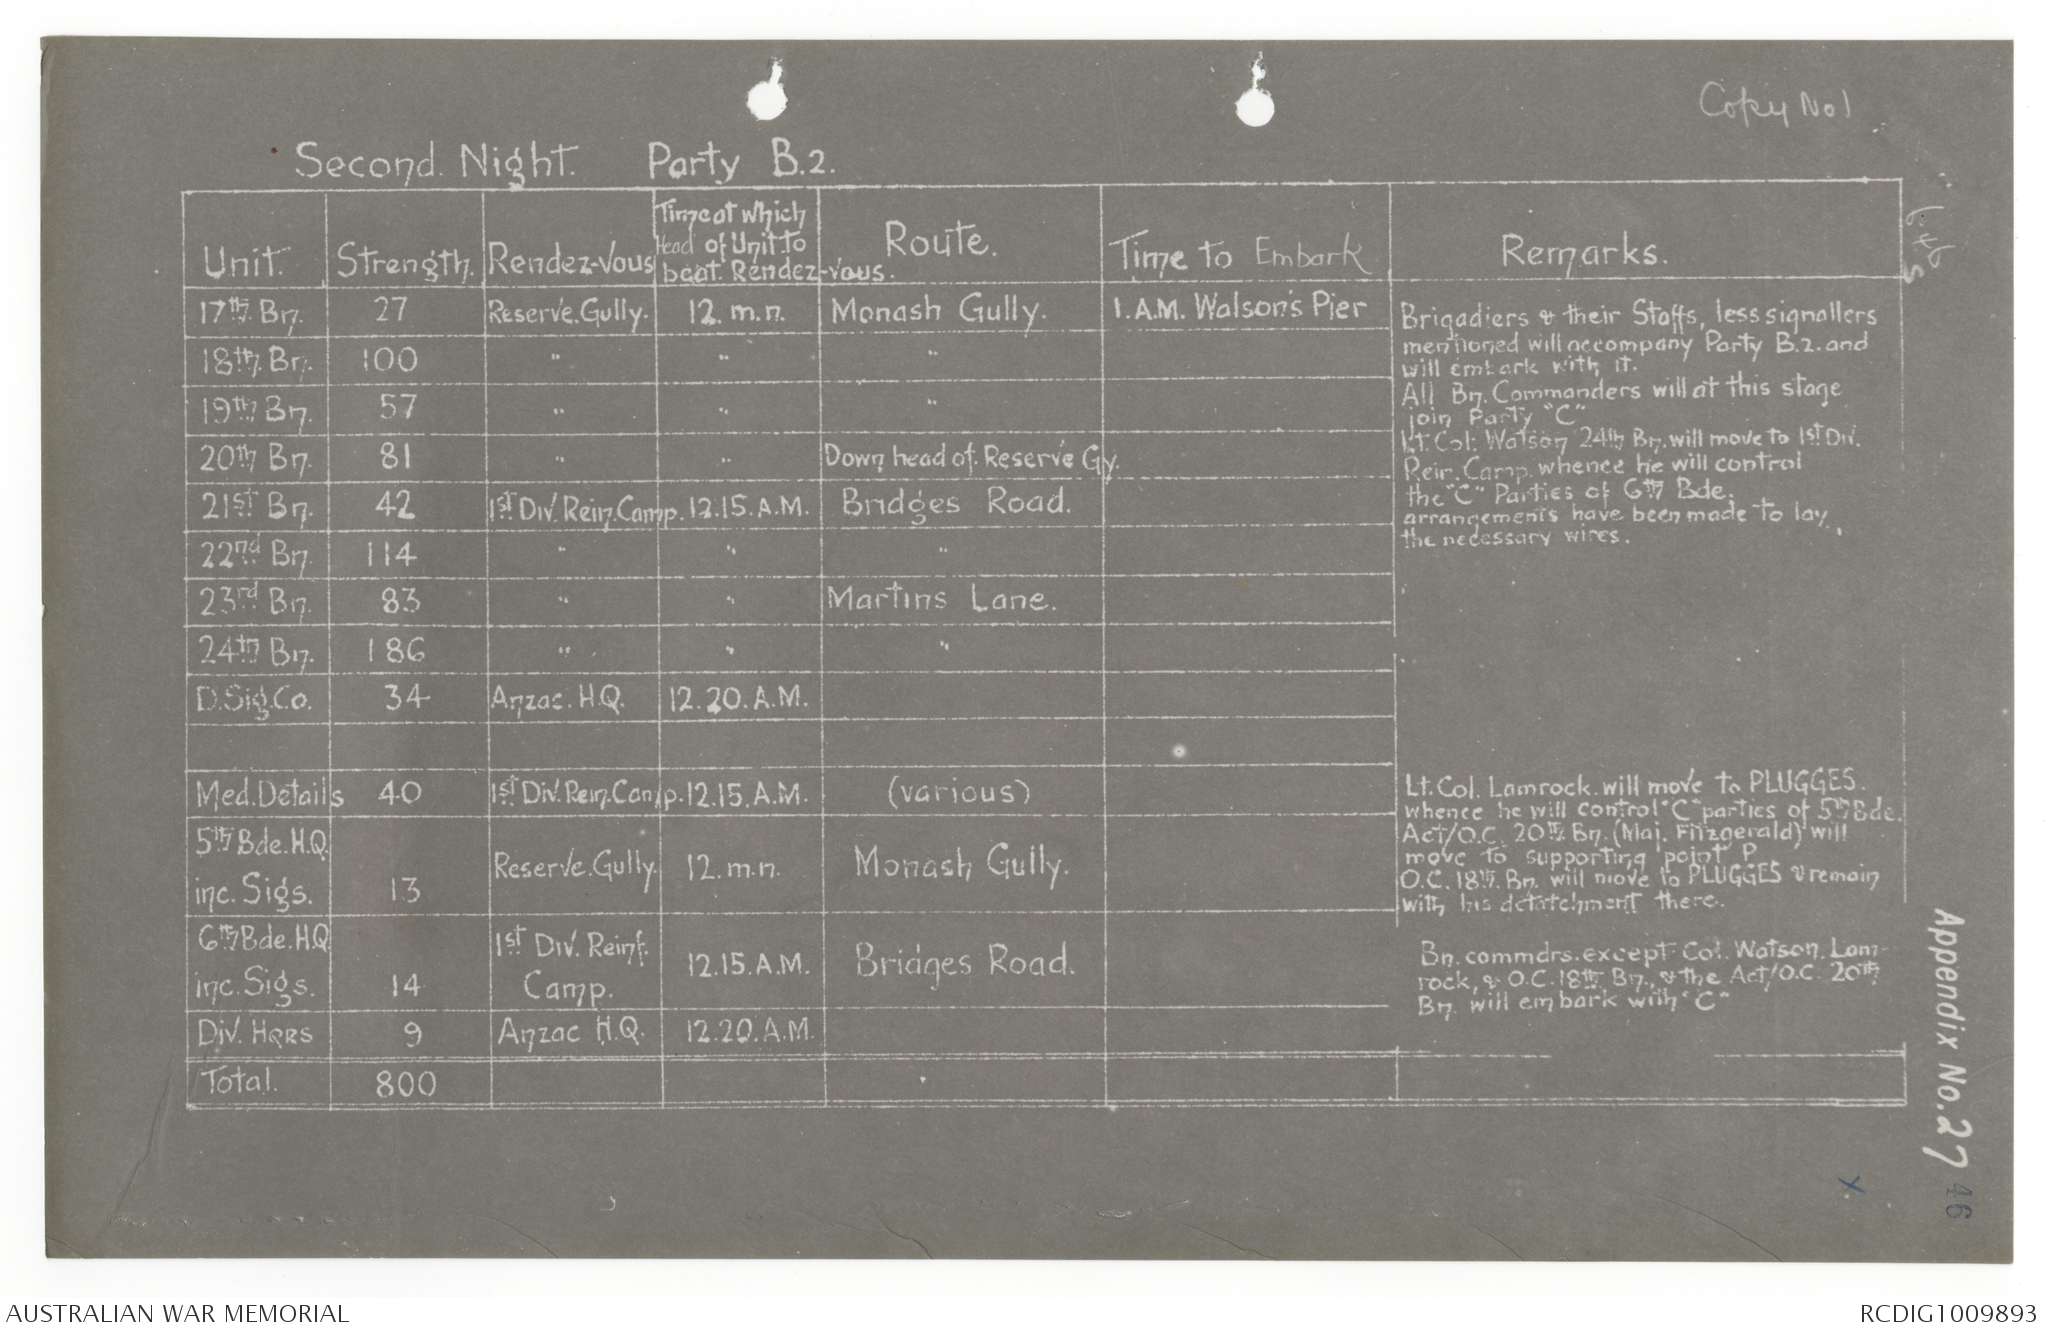 Copy No 1
Second. Night. Party B.2.
Unit. Strength. Rendez-vous Time at which Head of Unit to be at Rendez-vous. Route. Time to Embark Remarks.
17th Bn. 27 Reserve.Gully. 12. m.n. Monash Gully. 1.A.M. Walson's Pier
18th Bn. 100 " " "
19th Bn. 57 " " "
20th Bn. 81 " " Down head of Reserve Gy.
21st Bn. 42 1st Div. Rein. Camp. 12.15.A.M. Bridges Road.
22nd Bn. 114 " " "
23rd Bn. 83 " " Martins Lane.
24th Bn. 186 " " "
D.Sig.Co. 34 Anzac. H.Q. 12.20.A.M.
Med.Details 40 1st Div. Rein. Camp. 12.15.A.M. (various)
5th Bde. H.Q.
inc. Sigs. 13 Reserve.Gully. 12.m.n. Monash Gully.
6th Bde. H.Q.
inc. Sigs. 14 1st Div. Reinf. Camp. 12.15.A.M. Bridges Road.
Div. HQRS 9 Anzac H.Q. 12.20.A.M.
Total. 800
Brigadiers & their Staffs, less signallers
mentioned will accompany Party B.2. and
will embark with it.
All Bn. Commanders will at this stage
join Party "C"
Lt. Col: Watson 24th Bn. will move to 1st Div.
Rein. Camp. whence he will control
the "C" Parties of 6th Bde.
arrangements have been made to lay
the necessary wires.
Lt. Col. Lamrock. will move to PLUGGES.
whence he will control "C" parties of 5th Bde.
Act/O.C. 20th Bn. (Maj. Fitzgerald) will
move to supporting point P
O.C. 18th. Bn. will move to PLUGGES & remain
with his detatchment there.
Bn. commdrs. except Col. Watson, Lam-
rock, & O.C. 18th Bn., & the Act/O.C. 20th
Bn. will embark with "C"
Appendix No. 27
46
X
AUSTRALIAN WAR MEMORIAL
RCDIG1009893